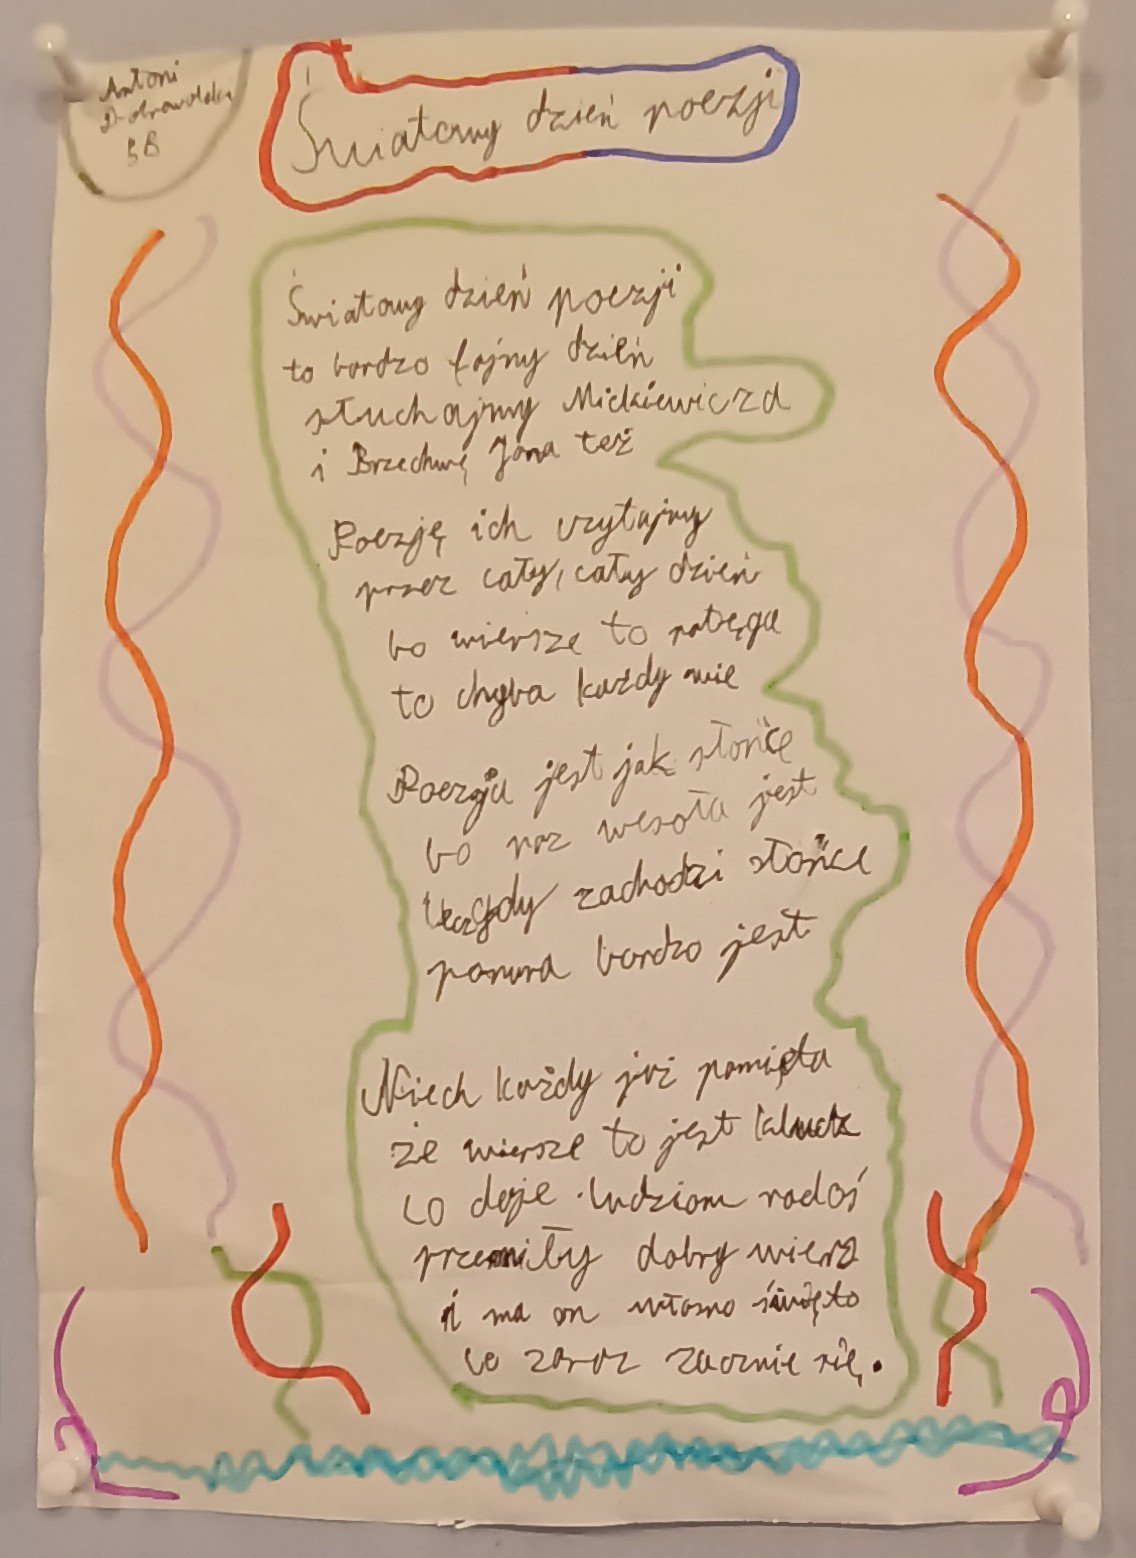 Antoni
5B
Światowy dzień poezji
Światowy dzień poezji
to bardzo fajny dzień
słuchajmy Mickiewicza
i Brzechwę Jana też
Poezję ich czytajmy
przez cały, cały dzień
bo wiersze to potęga
to chyba każdy wie
Poezja jest jak słońce
bo raz wesoła jest
zachodzi słońce
ponura bardzo jest
Niech każdy już pamięta
że wiersze to jest
co daje ludziom radoś
przemiły dobry wiersz
i ma on własno święto
co zaraz zacznie się.